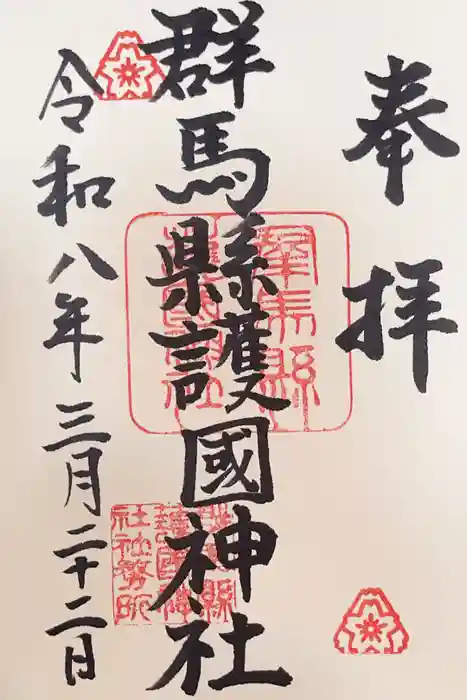 奉拝
群馬縣護國神社
令和八年三月二十二日
群馬縣護國神社
群馬縣護國神社社務所